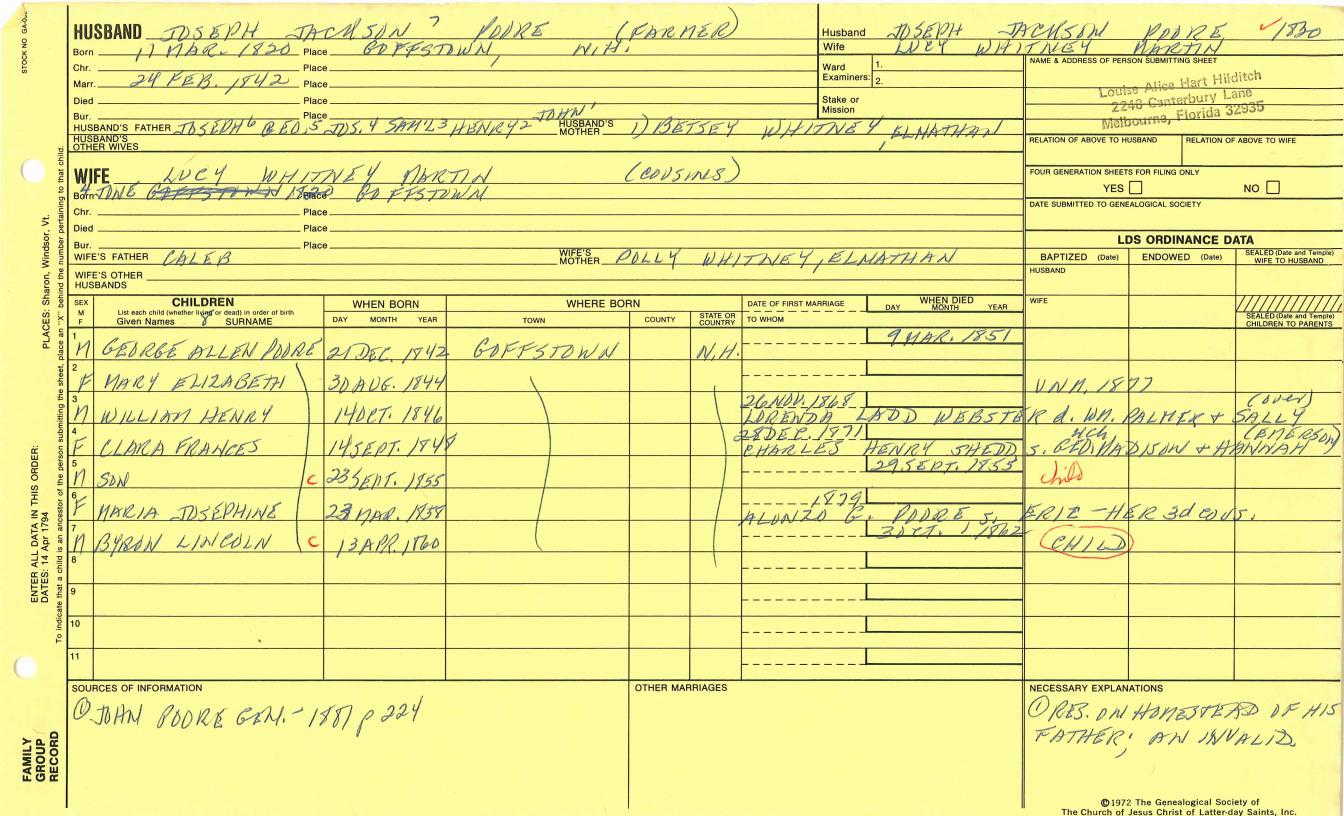 STOCK NO
HUSBAND JOSEPH JACKSON 7 POORE (FARMER)
Born 11 MAR. 1820 Place GOFFSTOWN, N.H.
Chr. Place
Marr. 24 FEB. 1842 Place
Died Place
Bur. Place
HUSBAND'S FATHER JOSEPH 6 GEO. 5 JOS. 4 SAML 3 HENRY 2 JOHN 1 HUSBAND'S MOTHER 1) BETSEY WHITNEY, ELNATHAN
HUSBAND'S OTHER WIVES
Husband JOSEPH JACKSON POORE ✓ 1830
Wife LUCY WHITNEY MARTIN
Ward Examiners: 1.
2.
Stake or Mission
NAME & ADDRESS OF PERSON SUBMITTING SHEET
Louise Alice Hart Hilditch
2248 Canterbury Lane
Melbourne, Florida 32935
RELATION OF ABOVE TO HUSBAND RELATION OF ABOVE TO WIFE
FOUR GENERATION SHEETS FOR FILING ONLY
YES NO
DATE SUBMITTED TO GENEALOGICAL SOCIETY
WIFE LUCY WHITNEY MARTIN (COUSINS)
Born 4 JUNE GOFFSTOWN 1820 Place GOFFSTOWN
Chr. Place
Died Place
Bur. Place
WIFE'S FATHER CALEB WIFE'S MOTHER POLLY WHITNEY, ELNATHAN
WIFE'S OTHER HUSBANDS
LDS ORDINANCE DATA
BAPTIZED (Date) ENDOWED (Date) SEALED (Date and Temple) WIFE TO HUSBAND
HUSBAND
WIFE
SEALED (Date and Temple) CHILDREN TO PARENTS
SEX M F
CHILDREN
List each child (whether living or dead) in order of birth
Given Names 8 SURNAME
WHEN BORN
DAY MONTH YEAR
WHERE BORN
TOWN COUNTY STATE OR COUNTRY
DATE OF FIRST MARRIAGE
TO WHOM
WHEN DIED
DAY MONTH YEAR
1 M GEORGE ALLEN POORE 21 DEC. 1842 GOFFSTOWN N.H. 9 MAR. 1851
2 F MARY ELIZABETH 30 AUG. 1844 UNM. 1877
3 M WILLIAM HENRY 14 OCT. 1846 26 NOV. 1868 LORENDA LADD WEBSTER d. WM. PALMER + SALLY (over)
4 F CLARA FRANCES 14 SEPT. 1848 28 DEC. 1871 CHARLES HENRY SHEDD s. GEO. MADISON + HANNAH (EMERSON) MCH
5 M SON C 23 SEPT. 1855 29 SEPT. 1855 child
6 F MARIA JOSEPHINE 23 MAR. 1858 1879 ALONZO G. POORE s. ERIC - HER 3d COUS.
7 M BYRON LINCOLN C 13 APR. 1860 3 OCT. 1862 CHILD
8
9
10
11
SOURCES OF INFORMATION
① JOHN POORE GEN. - 1881 p 224
OTHER MARRIAGES
NECESSARY EXPLANATIONS
① RES. ON HOMESTEAD OF HIS
FATHER; AN INVALID
©1972 The Genealogical Society of
The Church of Jesus Christ of Latter-day Saints, Inc.
FAMILY GROUP RECORD
ENTER ALL DATA IN THIS ORDER:
DATES: 14 Apr 1794
PLACES: Sharon, Windsor, Vt.
To indicate that a child is an ancestor of the person submitting the sheet, place an "X" behind the number pertaining to that child.